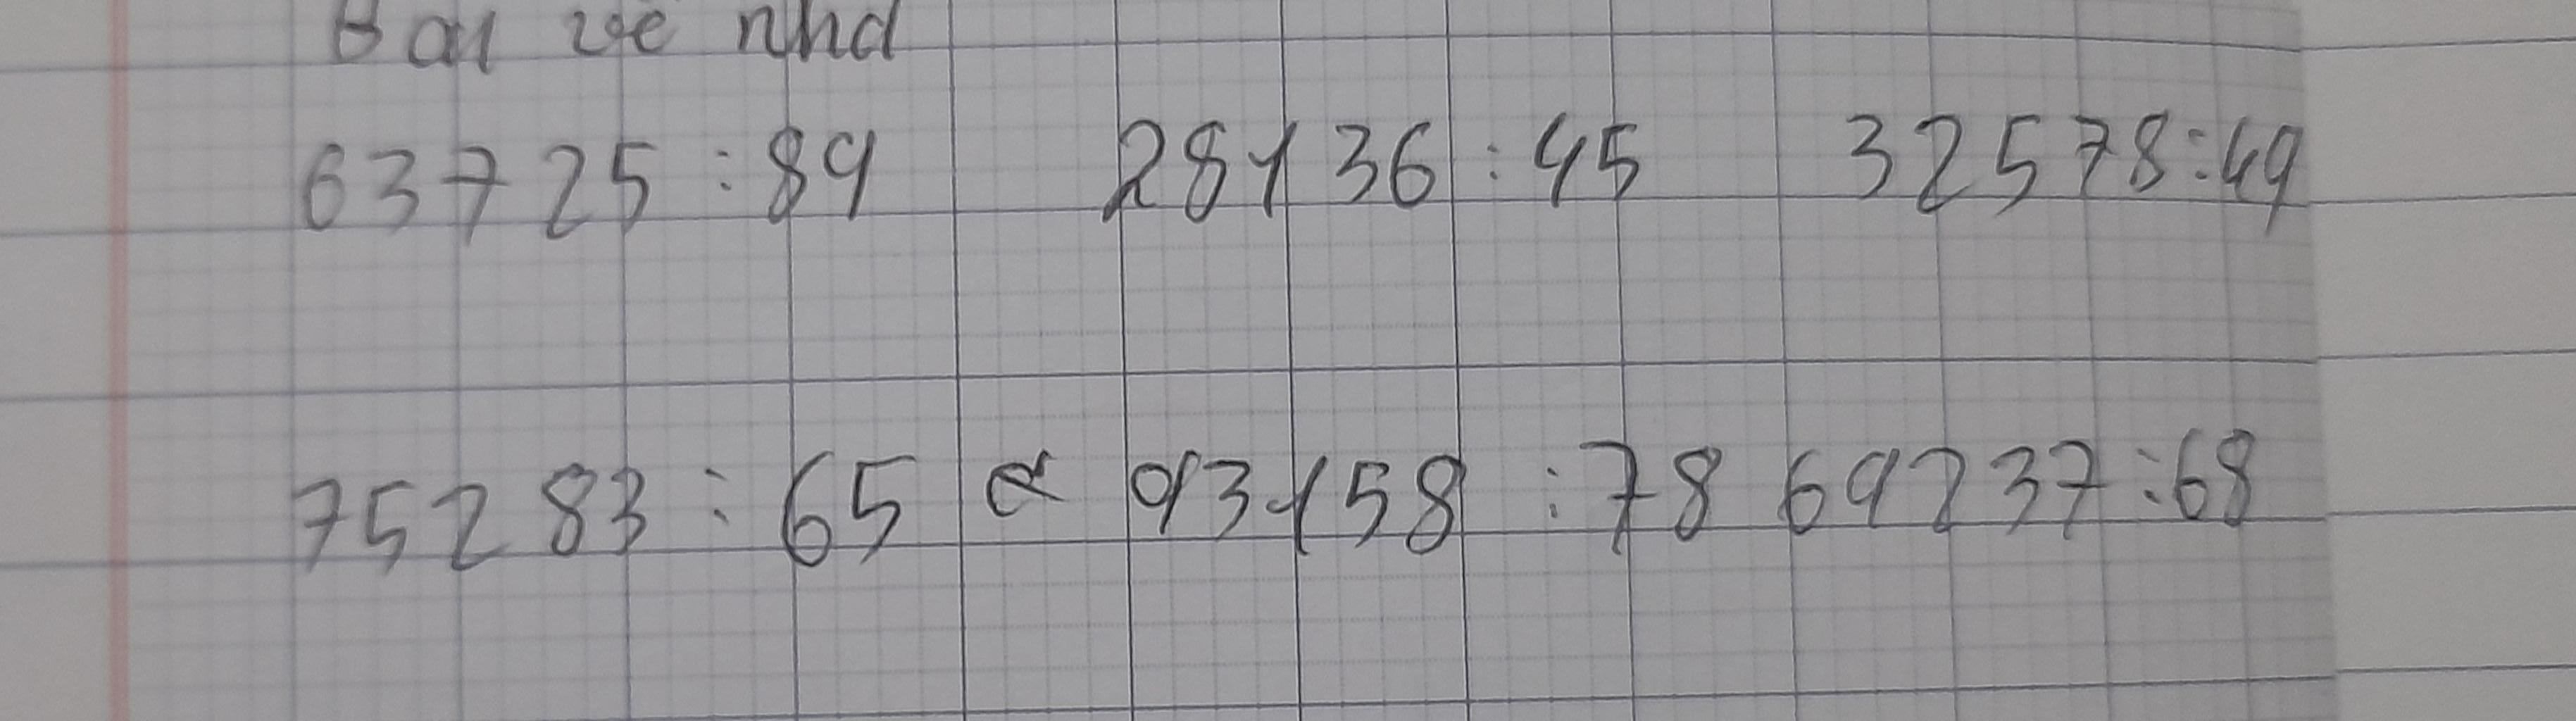 Bài về nhà
63725 : 89 28136 : 45 32578 : 49
75283 : 65 93158 : 78 69237 : 68